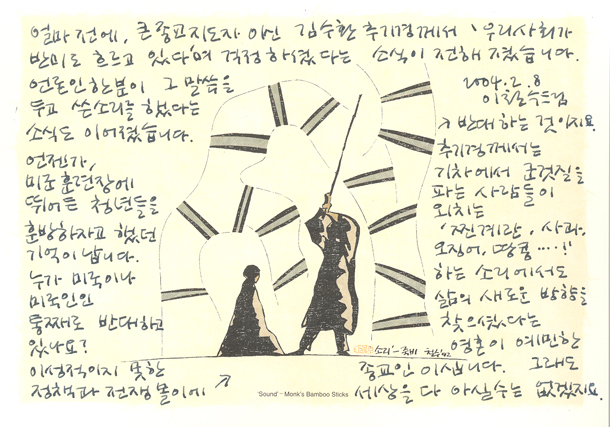 얼마 전에, 큰종교지도자 이신 김수환 추기경께서 '우리사회가
반미로 흐르고 있다'며 걱정하셨다는 소식이 전해 졌습니다.
언론인한분이 그 말씀을
두고 쓴소리를했다는
소식도 이어졌습니다.
언젠가,
미군훈련장에
뛰어든 청년들을
훈방하자고 했던
기억이 납니다.
누가 미국이나
미국인인
통째로 반대하고
있나요?
이성적이지 못한
정책과 전쟁몰이에
2004.2.8
이철수드림
반대하는 것이지요.
추기경께서는
기차에서 군것질을
파는 사람들이
외치는
'찐계란, 사과,
오징어, 땅콩....!'
하는 소리에서도
삶의 새로운 방향을
찾으셨다는
영혼이 예민한
종교인 이십니다. 그래도
세상을 다 아실수는 없겠지요.
'소리'-죽비 철수'92
'Sound' – Monk's Bamboo Sticks